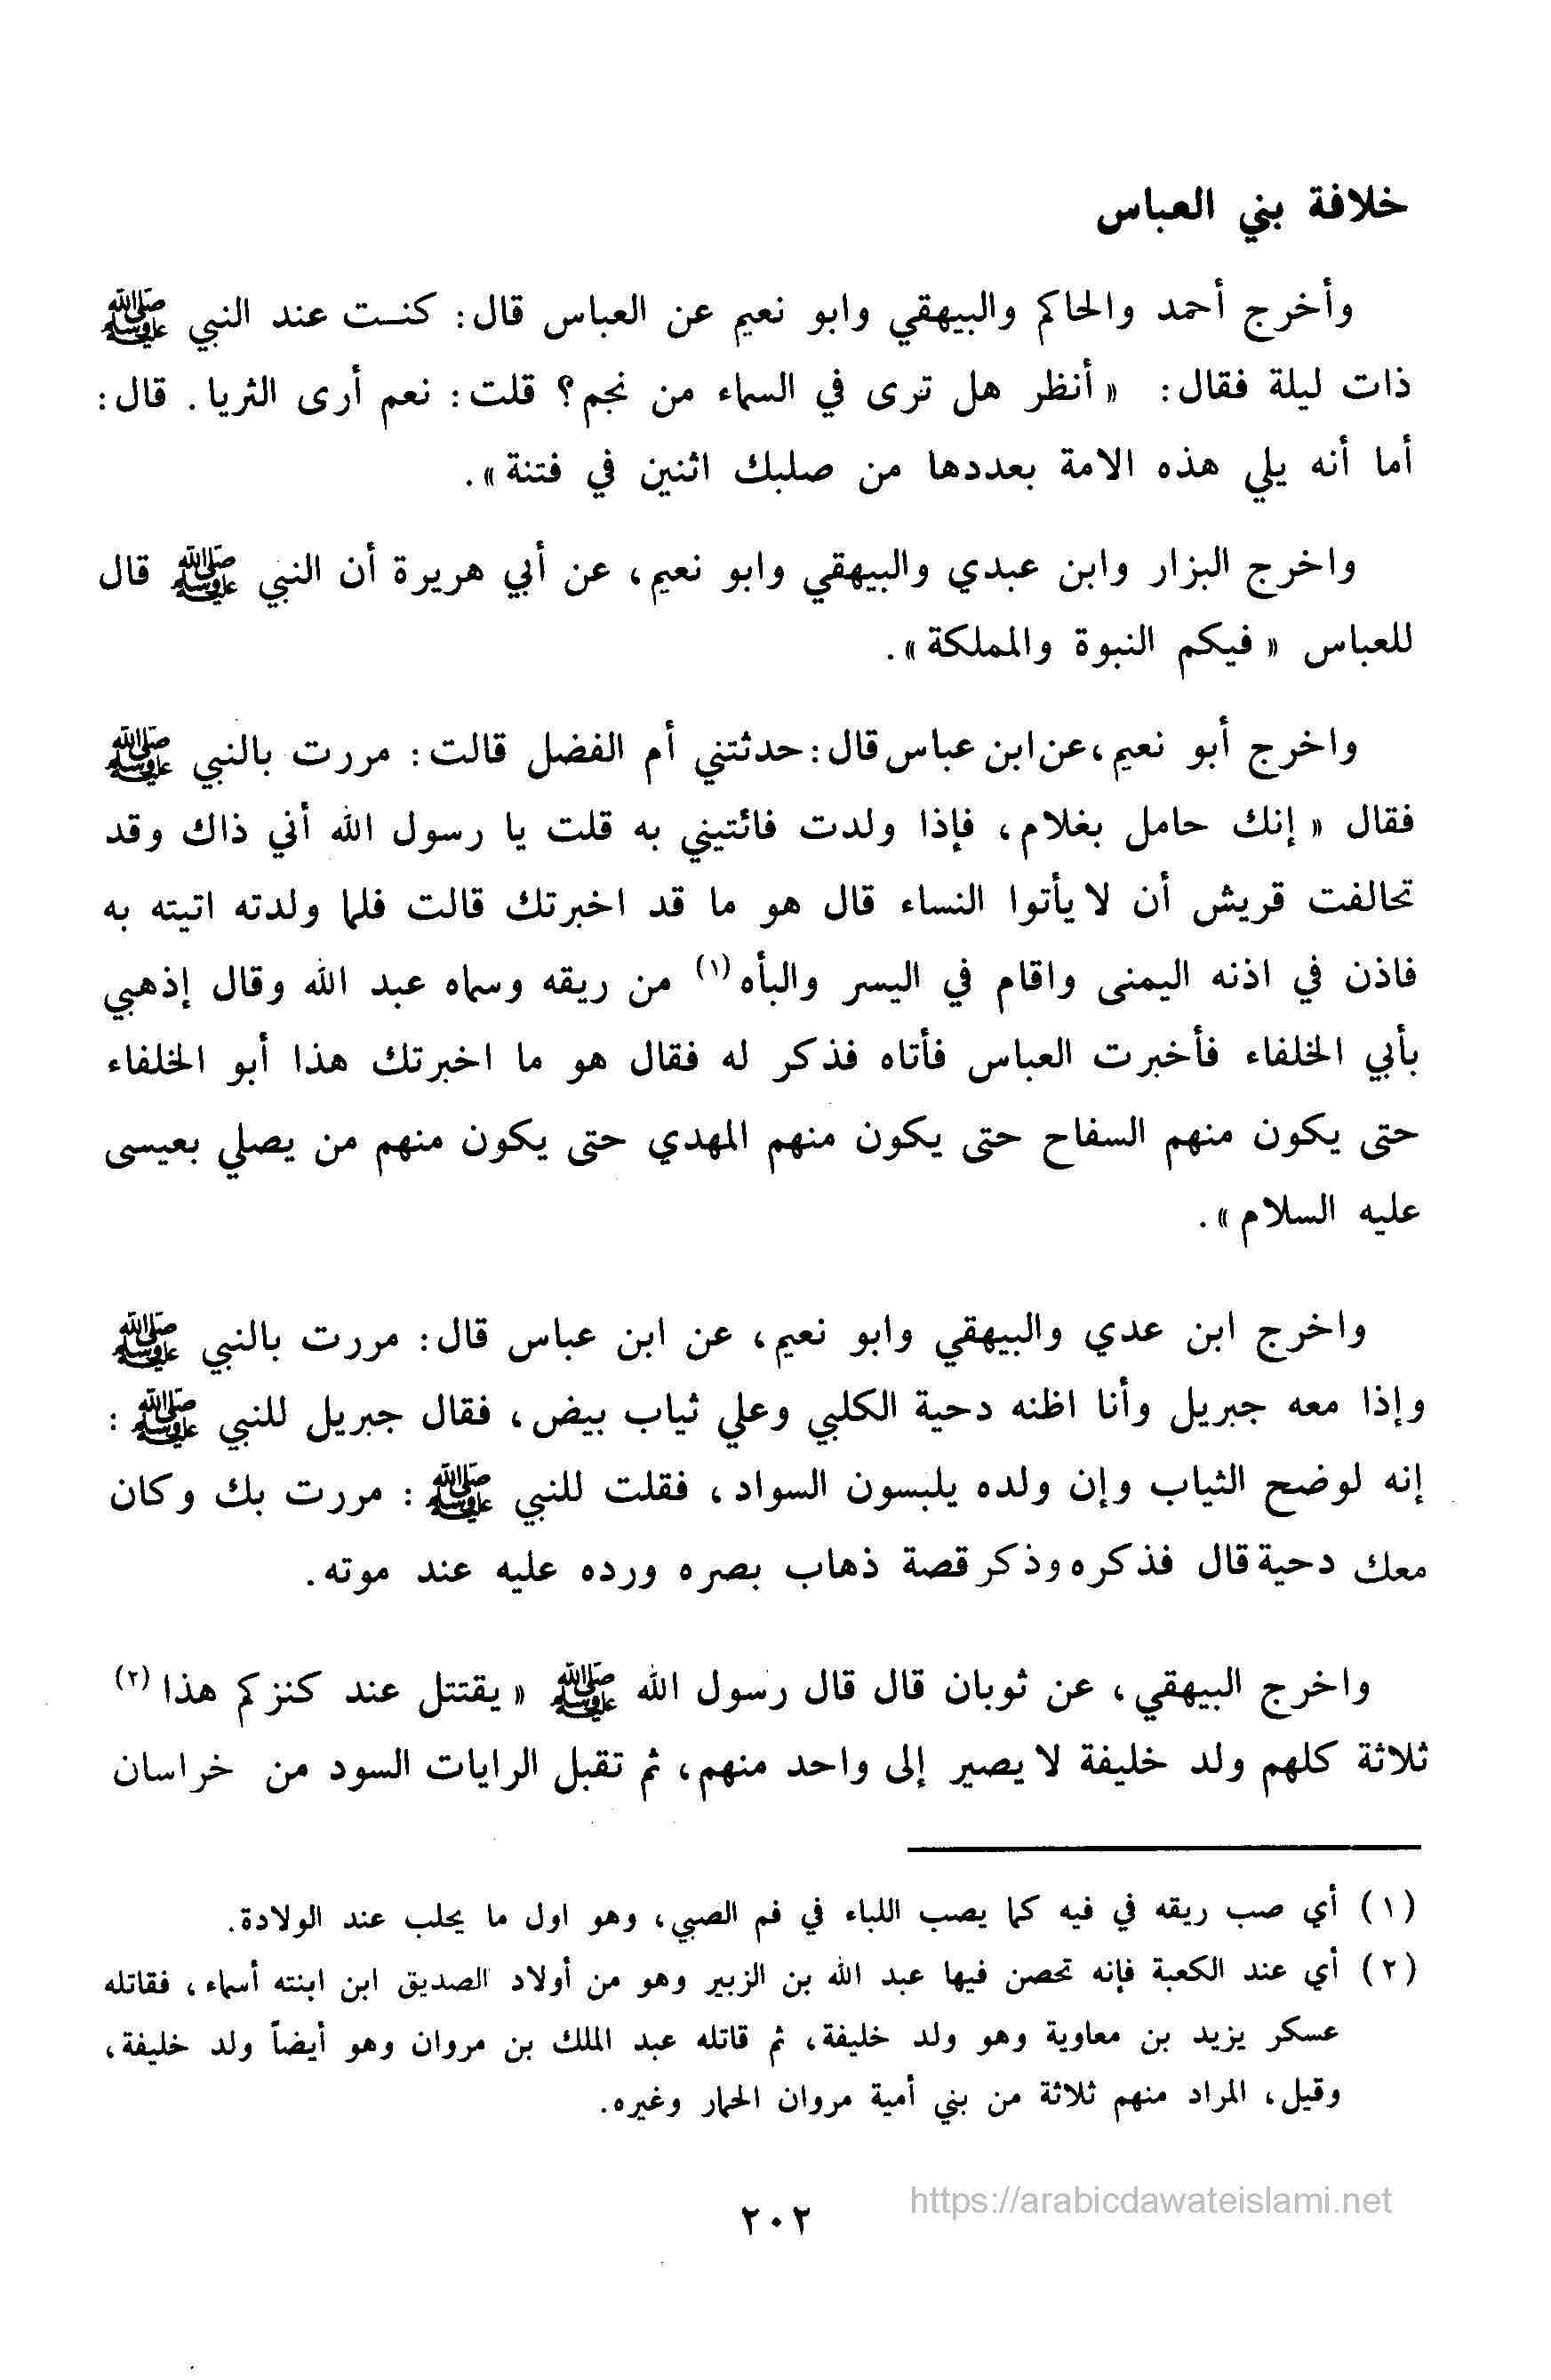 خلافة بني العباس
وأخرج أحمد والحاكم والبيهقي وابو نعيم عن العباس قال: كنـت عند النبي ﷺ
ذات ليلة فقال: « أنظر هل ترى في السماء من نجم؟ قلت: نعم أرى الثريا. قال:
أما أنه يلي هذه الامة بعددها من صلبك اثنين في فتنة ».
واخرج البزار وابن عبدي والبيهقي وابو نعيم، عن أبي هريرة أن النبي ﷺ قال
للعباس « فيكم النبوة والمملكة ».
واخرج أبو نعيم، عن ابن عباس قال: حدثتني أم الفضل قالت: مررت بالنبي ﷺ
فقال « إنك حامل بغلام، فإذا ولدت فائتيني به قلت يا رسول الله أني ذاك وقد
تحالفت قريش أن لا يأتوا النساء قال هو ما قد اخبرتك قالت فلما ولدته اتيته به
فاذن في اذنه اليمنى واقام في اليسر والبأه (١) من ريقه وسماه عبد الله وقال إذهبي
بأبي الخلفاء فأخبرت العباس فأتاه فذكر له فقال هو ما اخبرتك هذا أبو الخلفاء
حتى يكون منهم السفاح حتى يكون منهم المهدي حتى يكون منهم من يصلي بعيسى
عليه السلام ».
واخرج ابن عدي والبيهقي وابو نعيم، عن ابن عباس قال: مررت بالنبي ﷺ
وإذا معه جبريل وأنا اظنه دحية الكلبي وعلي ثياب بيض، فقال جبريل للنبي ﷺ :
إنه لوضح الثياب وإن ولده يلبسون السواد، فقلت للنبي ﷺ : مررت بك وكان
معك دحية قال فذكره وذكر قصة ذهاب بصره ورده عليه عند موته.
واخرج البيهقي، عن ثوبان قال قال رسول الله ﷺ « يقتتل عند كنزكم هذا (٢)
ثلاثة كلهم ولد خليفة لا يصير إلى واحد منهم، ثم تقبل الرايات السود من خراسان
(١) أي صب ريقه في فيه كما يصب اللباء في فم الصبي، وهو اول ما يحلب عند الولادة.
(٢) أي عند الكعبة فإنه تحصن فيها عبد الله بن الزبير وهو من أولاد الصديق ابن ابنته أسماء، فقاتله
عسكر يزيد بن معاوية وهو ولد خليفة، ثم قاتله عبد الملك بن مروان وهو أيضاً ولد خليفة،
وقيل، المراد منهم ثلاثة من بني أمية مروان الحمار وغيره.
https://arabicdawateislami.net
٢٠٢